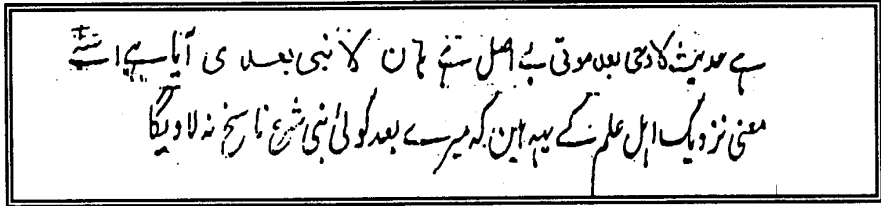 ہے حدیث لا وحی بعد موتی بے اصل ہے ہان لا نبی بعدی آیا ہے اسکے
معنی نزدیک اہل علم کے یہہ ہین کہ میرے بعد کوئی نبی شرع ناسخ نہ لاویگا